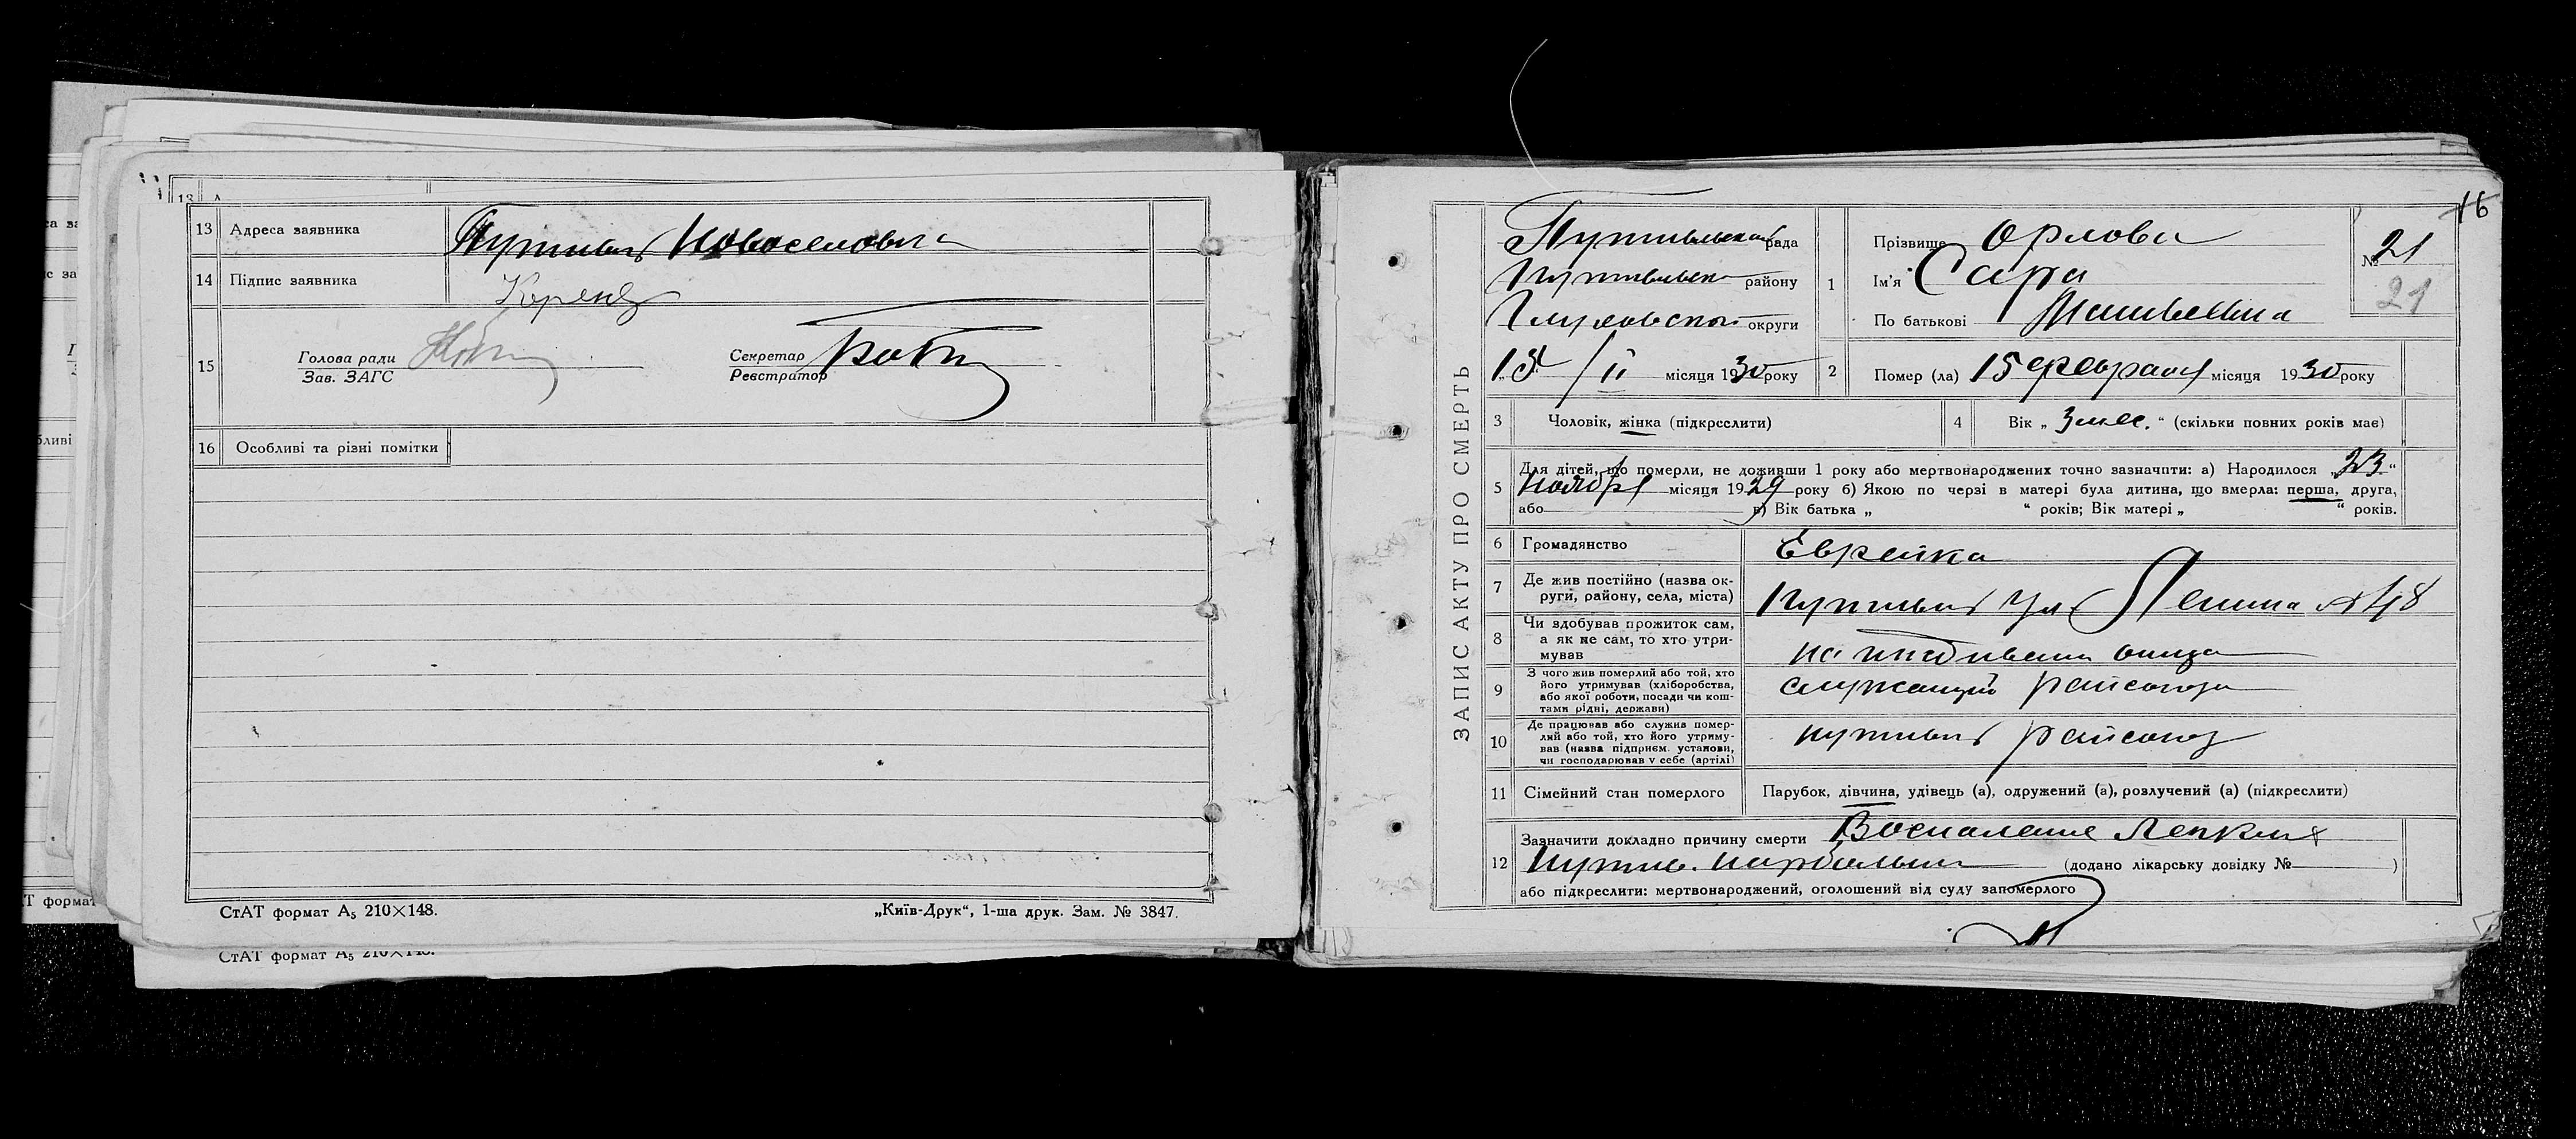 13 Адреса заявника Путивль Новоселовка
14 Підпис заявника
15 Голова ради
Зав. ЗАГС
Секретар
Реєстратор
16 Особливі та різні помітки
СтАТ формат А5 210×148.
„Київ-Друк“, 1-ша друк. Зам. № 3847.
СтАТ формат А5 210×148.
16
ЗАПИС АКТУ ПРО СМЕРТЬ
Путивльская рада
Путивльск району
Глуховской округи
/II місяця 1930 року
1 Прізвище Орлова
Ім'я Сара
По батькові Матвеевна
№ 21
21
2 Помер (ла) 15 февраля місяця 1930 року
3 Чоловік, жінка (підкреслити)
4 Вік „ 3 мес. “ (скільки повних років має)
5 Для дітей, що померли, не доживши 1 року або мертвонароджених точно зазначити: а) Народилося „23“
Ноября місяця 1929 року б) Якою по черзі в матері була дитина, що вмерла: перша, друга,
або в) Вік батька „ “ років; Вік матері „ “ років.
6 Громадянство Еврейка
7 Де жив постійно (назва ок-
руги, району, села, міста) Путивль ул Ленина № 48
8 Чи здобував прожиток сам,
а як не сам, то хто утри-
мував на иждивении отца
9 З чого жив померлий або той, хто
його утримував (хліборобства,
або якої роботи, посади чи кош-
тами рідні, держави) служащий райсоюза
10 Де працював або служив помер-
лий або той, хто його утриму-
вав (назва підприєм. установи,
чи господарював у себе (артілі) путивль райсоюз
11 Сімейний стан померлого Парубок, дівчина, удівець (а), одружений (а), розлучений (а) (підкреслити)
12 Зазначити докладно причину смерти Воспаление Легких
Путив. (додано лікарську довідку № )
або підкреслити: мертвонароджений, оголошений від суду за померлого